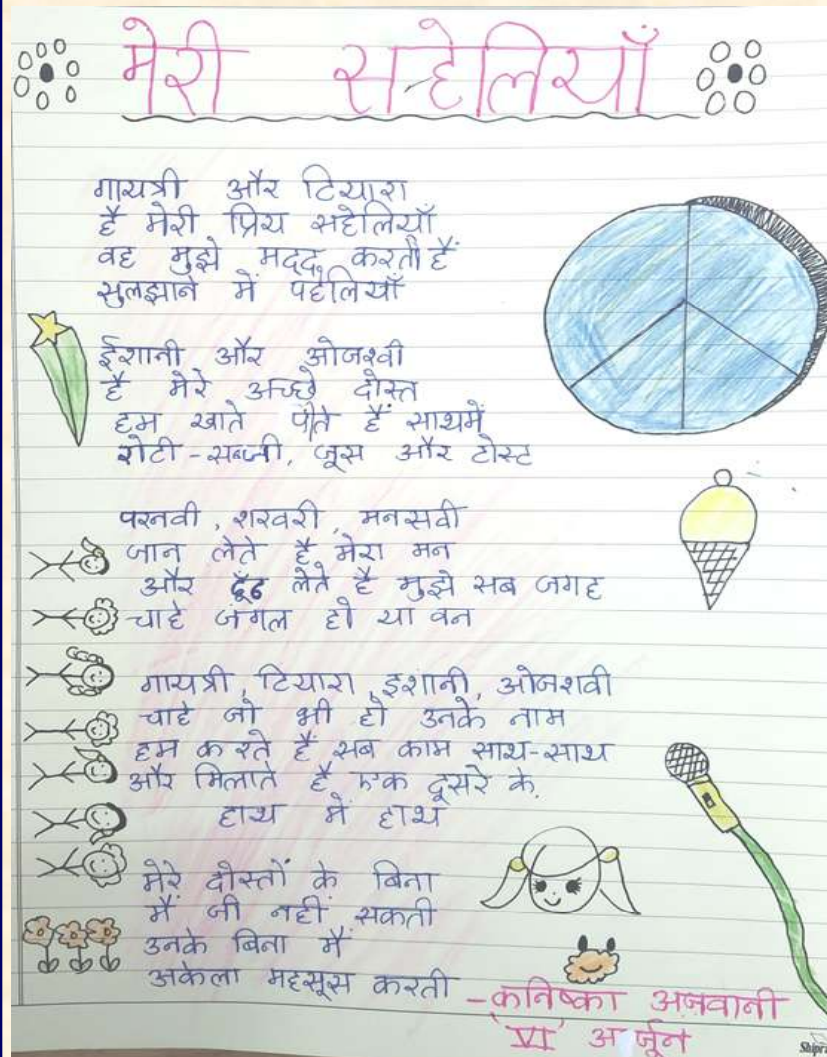 मेरी सहेलियाँ
गायत्री और टियारा
है मेरी प्रिय सहेलियाँ
वह मुझे मदद करती हैं
सुलझाने में पहेलियाँ
ईशानी और ओजश्वी
है मेरे अच्छे दोस्त
हम खाते पीते हैं साथमें
रोटी-सब्जी, जूस और टोस्ट
परनवी, शरवरी, मनसवी
जान लेते है मेरा मन
और ढूँढ लेते है मुझे सब जगह
चाहे जंगल हो या वन
गायत्री, टियारा, इशानी, ओजशवी
चाहे जो भी हो उनके नाम
हम करते हैं सब काम साथ-साथ
और मिलाते है एक दूसरे के
हाथ में हाथ
मेरे दोस्तों के बिना
मैं जी नहीं सकती
उनके बिना मैं
अकेला महसूस करती
-कनिष्का अजवानी
'VI' अर्जुन